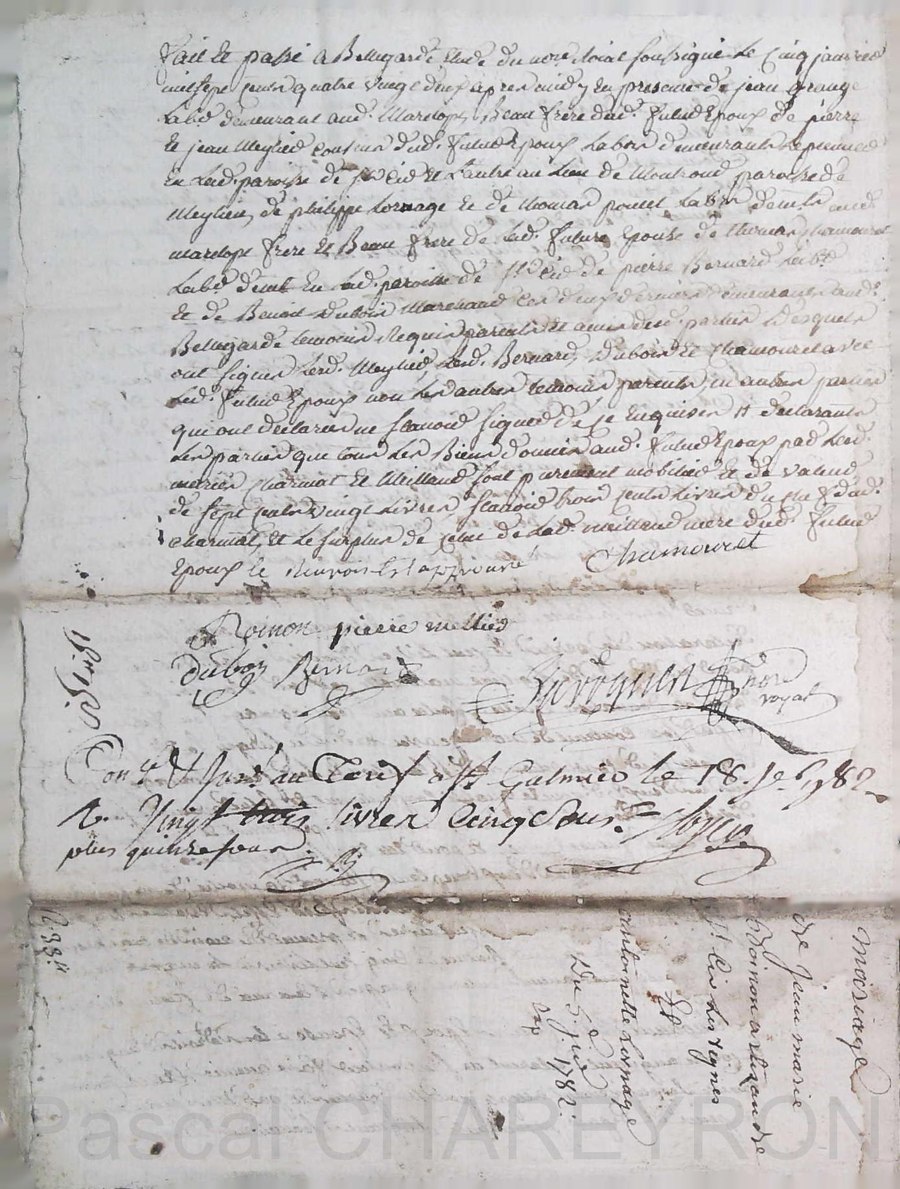 Fait et passé à Bellegarde Etude du no.re Roial soussigné Le Cinq janvier
mil sept cents quatre vingt deux apres midy En presence de jean grange
Lab.r demeurant aud. Marclopt Beau frere dud. futur Epoux de pierre
Et jean Meylied cousins dud. futur Epoux Lab.rs demeurants Le premier
En Lad. paroisse de St Cir Et L'autre au Lieu de Montrond paroisse de
Meylieu, de philippe Lornage Et de Thomas poncet Lab.rs dem.ts aud.
marclopt frere Et Beau frere de Lad. future Epouse de Chamouret
Lab.r dem.t En Lad. paroisse de St Cir de pierre Bernard Lab.r
Et de Benoit Dubois Marchand Ces deux derniers demeurants aud.
Bellegarde temoins Requis parents Et amis desd. parties Desquels
ont signés Led. Meylied Led. Bernard, Dubois Et Chamouret avec
Led. futur Epoux non Les autres temoins parents, ni autres parties
qui ont declarés ne scavoir signer de ce Enquis Et declarants
Les parties que tous Les Biens donnés aud. futur Epoux par Led.
Charmat Et Meilland sont purement mobilier Et de valeur
de sept cents vingt Livres scavoir trois cents Livres du Chef dud.
Charmat, Et Le surplus de Celui de Lad. meilland mere dud. futur
Epoux le Renvois Est approuvé
Chamouret
Roinon pierre mellied
Dubois Bernard
no.re royal
Con.le & Ins.é au Tarif à St Galmier le 18 Je 1782
R. Vingt trois livres Cinq Sous
plus quinze sous
Mariage
de jean marie
Roinon
St Cir Les vignes
&
antoinette Lornage
Du 5 j.er 1782.
Exp